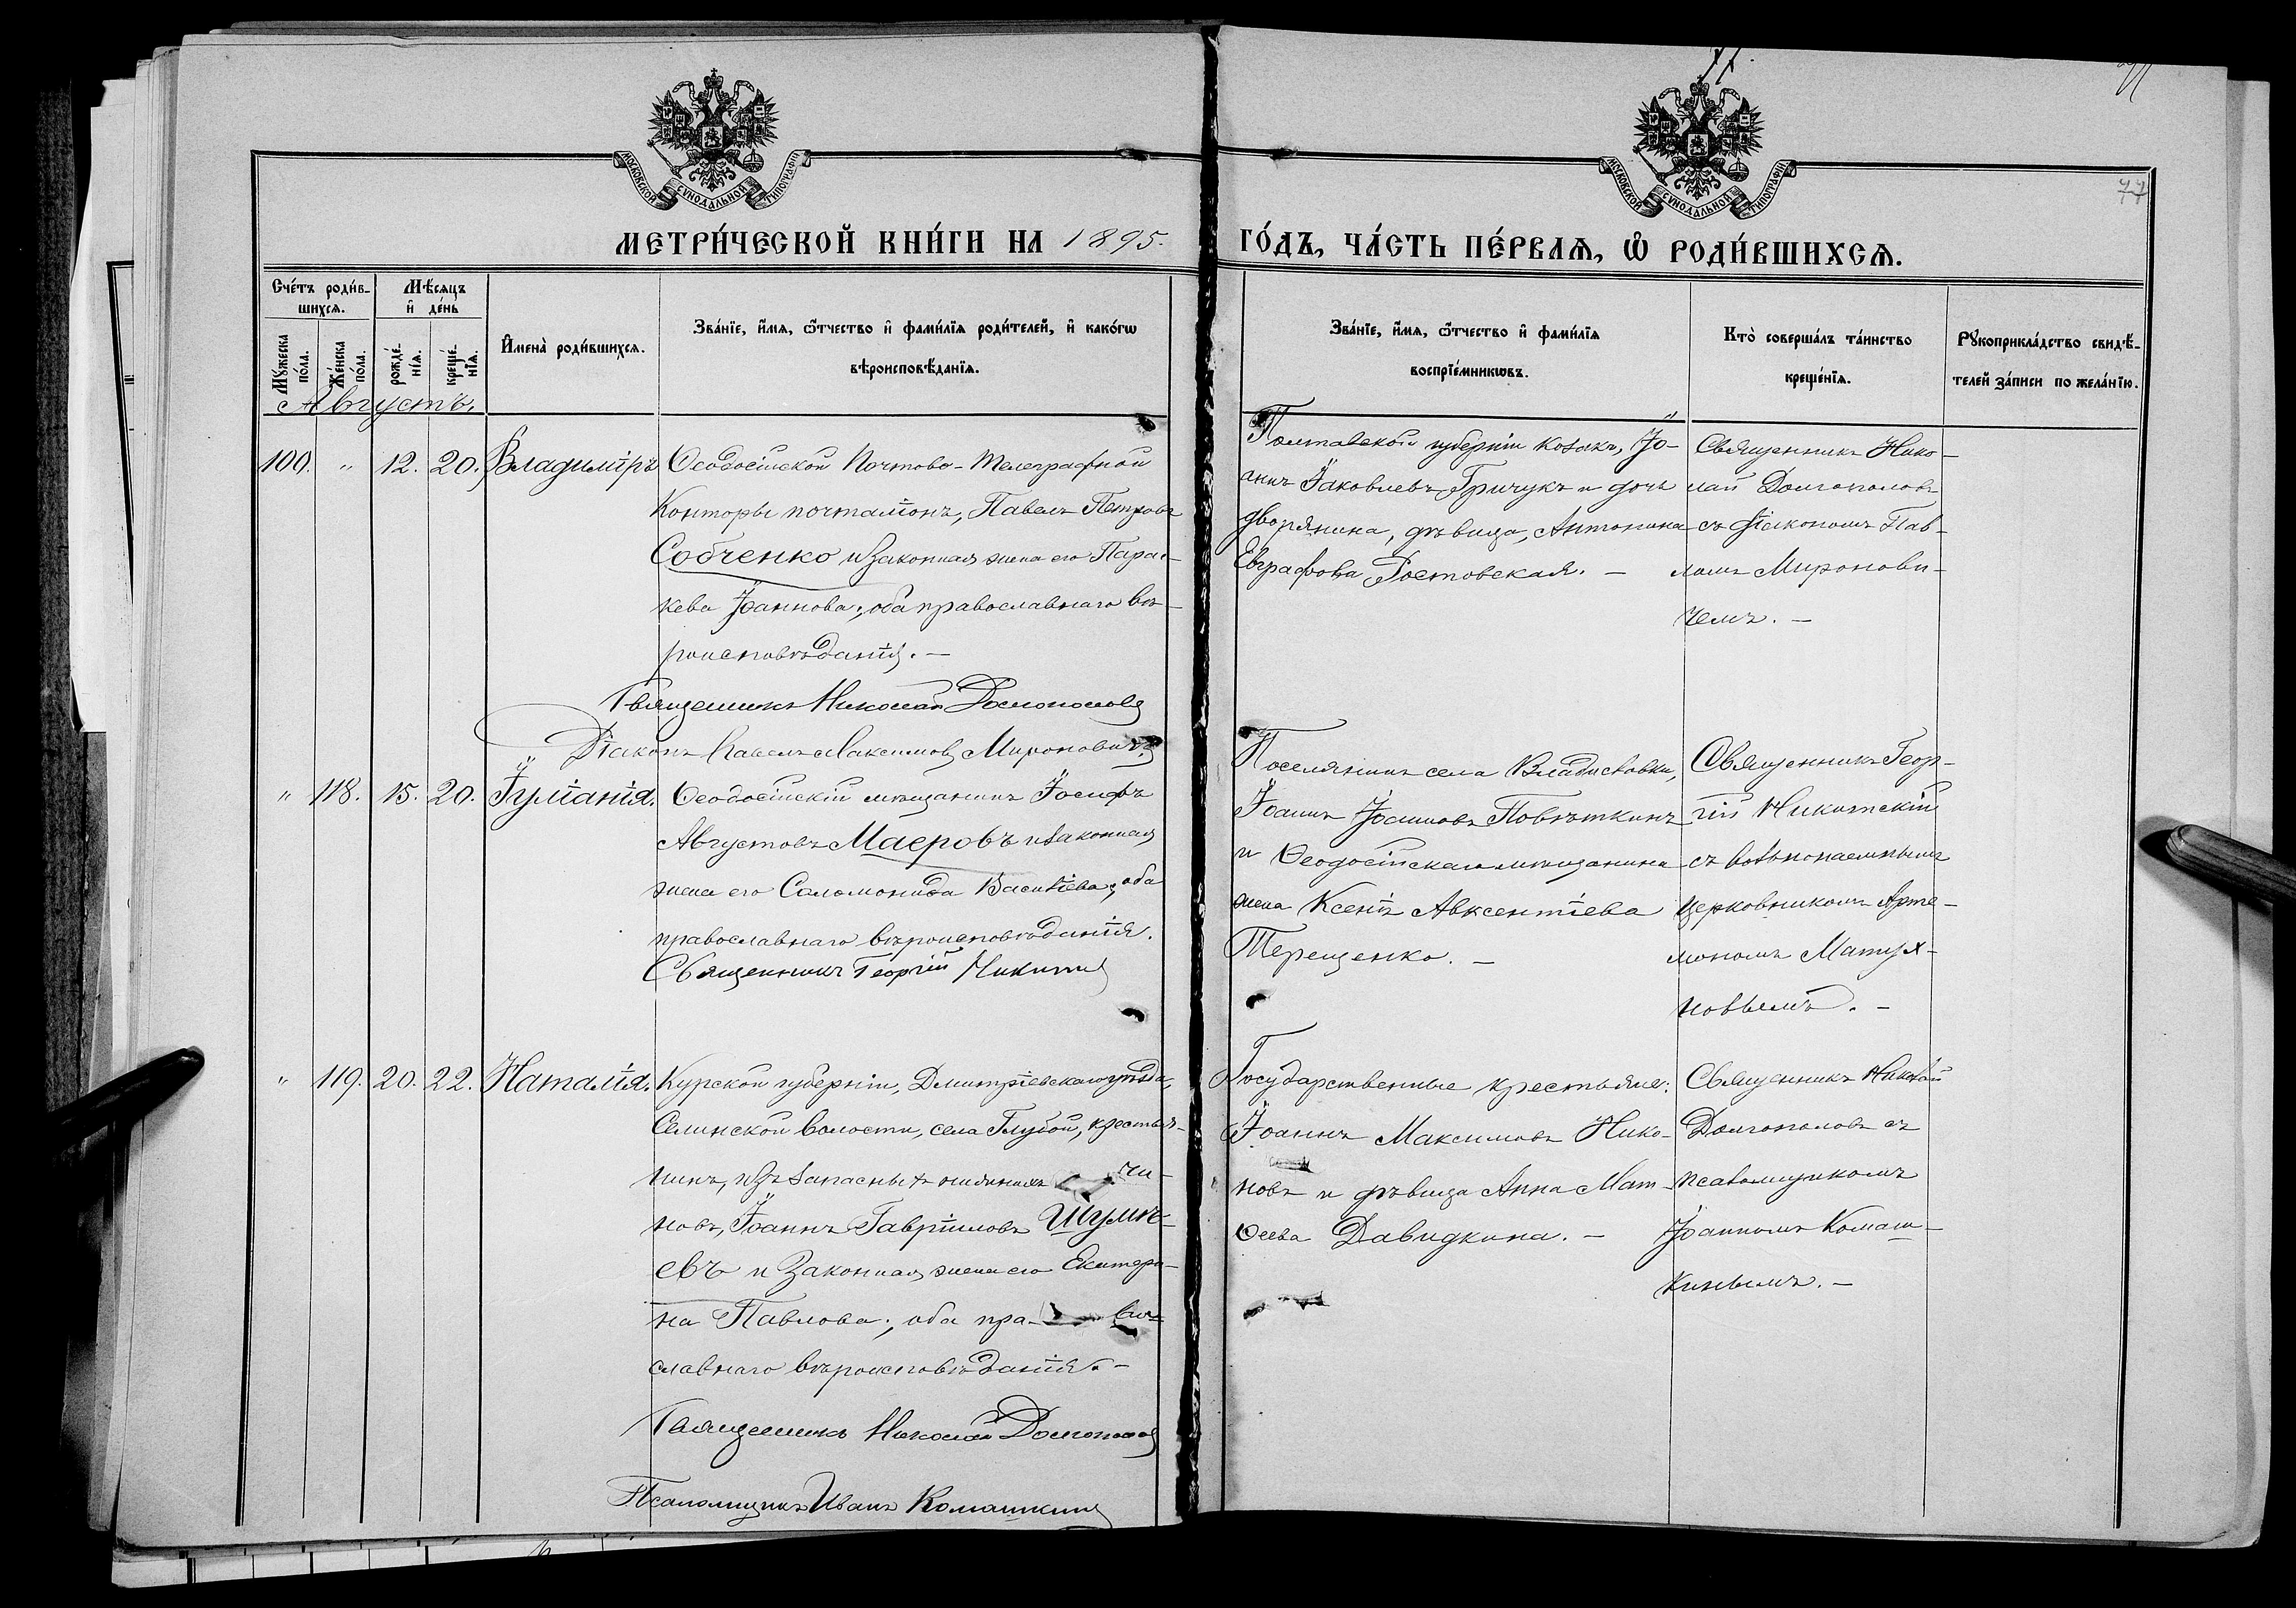 77.
77
МОСКОВСКОЙ СѴНОДАЛЬНОЙ ТИПОГРАФІИ
МОСКОВСКОЙ СѴНОДАЛЬНОЙ ТИПОГРАФІИ
МЕТРИ́ЧЕСКОЙ КНИ́ГИ НА 1895.
ГО́ДЪ, ЧА́СТЬ ПЕ́РВАѦ, Ѡ҆ РОДИ́ВШИХСѦ.
Сче́тъ роди́в-
шихсѧ.
Мꙋ́жеска по́ла.
Же́нска по́ла.
Мѣ́сяцъ и҆ де́нь
рожде́-нїѧ.
креще́-нїѧ.
И҆мена̀ роди́вшихсѧ.
Зва́нїе, и҆́мѧ, ѻ҆́тчество и҆ фами́лїѧ роди́телей, и҆ како́гѡ
вѣроисповѣ́данїѧ.
Зва́нїе, и҆́мѧ, ѻ҆́тчество и҆ фами́лїѧ
воспрїе́мникѡвъ.
Кто̀ соверша́лъ та́инство
креще́нїѧ.
Рꙋкоприкла́дство свидѣ́-
телей за́писи по жела́нїю.
Августъ.
100. " 12. 20. Владиміръ
Ѳеодосійской Почтово-Телеграфной
Конторы почталіонъ, Павелъ Петровъ
Собченко и законная жена его Парас-
кева Іоаннова; оба православнаго вѣ-
роисповѣданія. –
Священникъ Николай Долгополовъ
Діаконъ Павелъ Максимовъ Мироновичъ
Полтавской губерніи козакъ, Іо-
аннъ Іаковлевъ Гричукъ и дочь
дворянина, дѣвица, Антонина
Евграфова Ростовская. –
Священникъ Нико-
лай Долгополовъ
съ діакономъ Пав-
ломъ Миронови-
чемъ. –
" 118. 15. 20. Іуліанія.
Ѳеодосійскій мѣщанинъ Іосифъ
Августовъ Маеровъ и законная
жена его Соломонида Василіева; оба
православнаго вѣроисповѣданія.
Священникъ Георгій Никитскій
Поселянинъ села Владиславки,
Іоаннъ Іоанновъ Повѣткинъ
и Ѳеодосійскаго мѣщанина
жена Ксенія Авксентіева
Терещенко. –
Священникъ Геор-
гій Никитскій
съ вольнонаемнымъ
церковникомъ Арте-
мономъ Матух-
новымъ. –
" 119. 20. 22. Наталія.
Курской губерніи, Дмитріевскаго уѣзда,
Селинской волости, села Глубой, крестья-
нинъ, изъ запасныхъ чи-
новъ, Іоаннъ Гавріиловъ Шумѣ-
евъ и законная жена его Екатери-
на Павлова; оба пра- во-
славнаго вѣроисповѣданія. –
Священникъ Николай Долгополовъ
Псаломщикъ Иванъ Комашкинъ
Государственные крестьяне:
Іоаннъ Максимовъ Нико-
новъ и дѣвица Анна Мат-
ѳеева Давидкина. –
Священникъ Николай
Долгополовъ съ
псаломщикомъ
Іоанномъ Комаш-
кинымъ. –